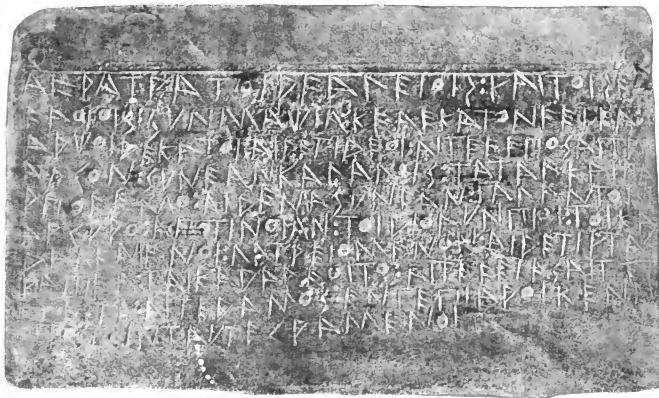 ΑϜΡΑΤΡΑΤΟΙΡϜΑΛΕΙΟΙΣ:ΚΑΙΤΟΙΣΕΡ
ϜΑΟΙΟΙΣ:ΣΥΝΜΑΧΙΑΚΕΑΕΚΑΤΟΝϜΕΤΕΑ:
ΑΡΧΟΙΔΕΚΑΤΟΙ:ΑΙΔΕΤΙΔΕΟΙ:ΑΙΤΕϜΕΠΟΣΑΙΤΕϜ
ΑΡΓΟΝ:ΣΥΝΕΑΝΚΑΛΑΛΟΙΣ:ΤΑΤΑΛΚΑΙΠΑ
ΡΠΟΛΕΜΟ:ΑΙΔΕΜΑΣΥΝΕΑΝ:ΤΑΛΑΝΤΟΝΚ
ΑΡΓΥΡΟ:ΑΠΟΤΙΝΟΙΑΝ:ΤΟΙΔΙΟΛΥΝΠΙΟΙ:ΤΟΙΚΑ
ΔΑΛΕΜΕΝΟΙ:ΛΑΤΡΕΙΟΜΕΝΟΝ:ΑΙΔΕΤΙΡΤΑΓ
ΡΑΦΕΑ:ΤΑΙΚΑΔΑΛΕΟΙΤΟ:ΑΙΤΕϜΕΤΑΣΑΙΤΕΤ
ΕΛΕΣΤΑ:ΑΙΤΕΔΑΜΟΣ:ΕΝΤΕΠΙΑΡΟΙΚΕΝΕΧ
ΟΙΤΟΤΟΙΝΤΑΥΤΕΓΡΑΜΕΝΟΙ